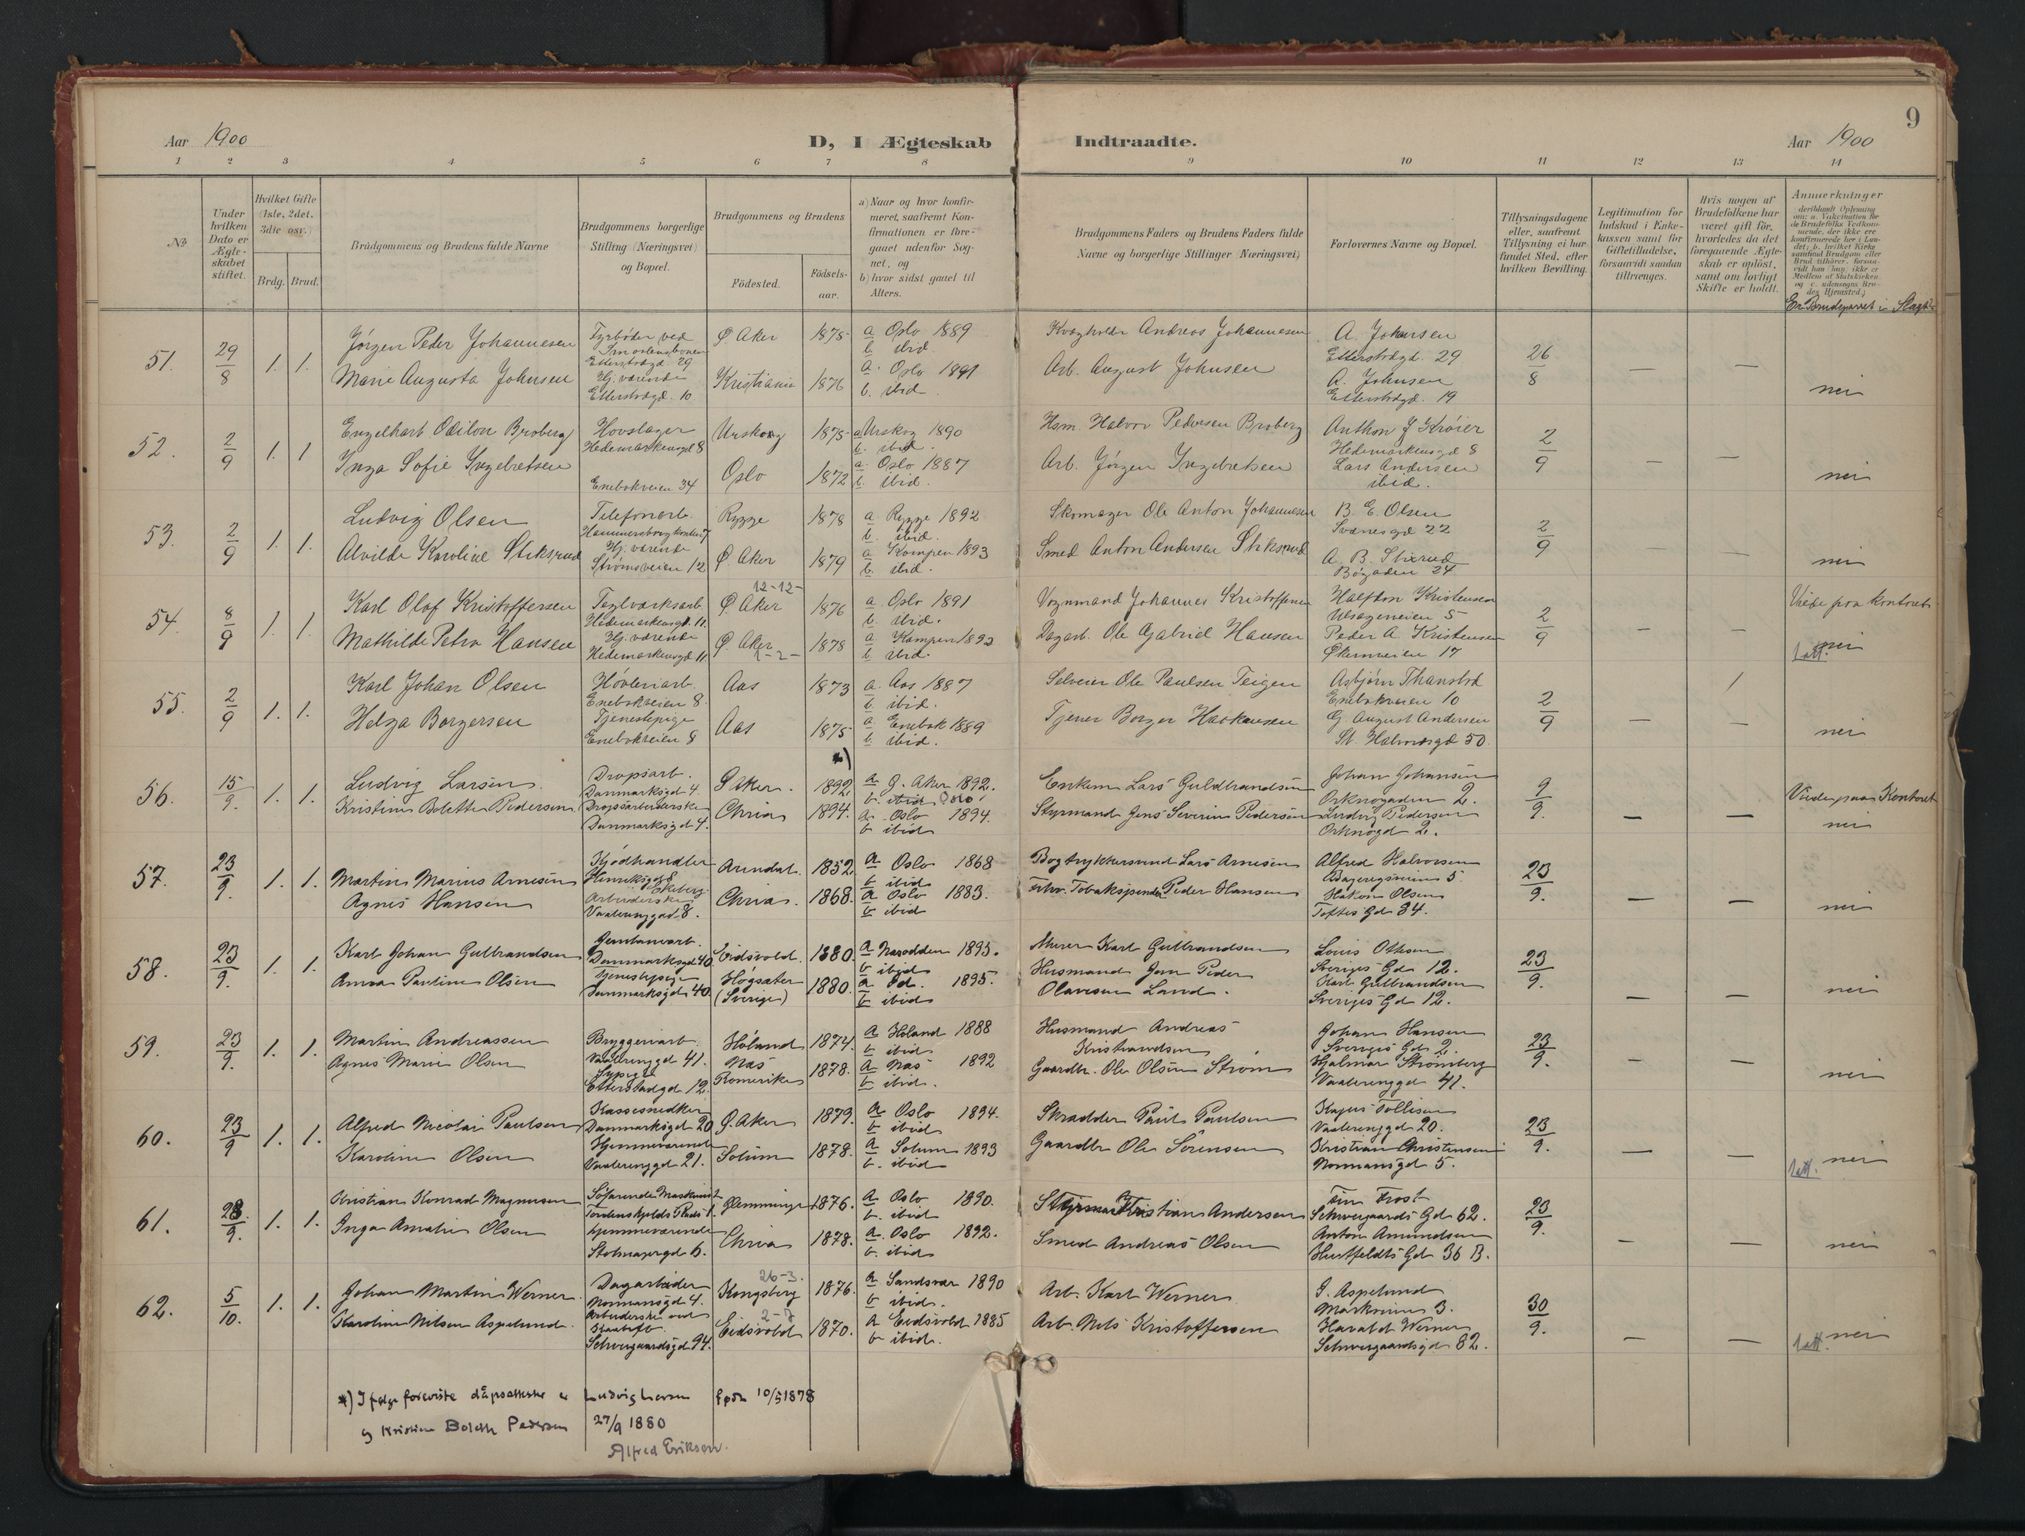 Aar 1900
D, I Ægteskab Indtraadte.
9
Aar 1900
1 2 3 4 5 6 7 8 9 10 11 12 13 14
No
Under hvilken Dato er Ægteskabet stiftet.
Hvilket Gifte (1ste, 2det, 3die osv.)
Brdg. Brud.
Brudgommens og Brudens fulde Navne
Brudgommens borgerlige Stilling (Næringsvei) og Bopæl.
Brudgommens og Brudens
Fødested.
Fødselsaar.
a) Naar og hvor konfirmeret, saafremt Konfirmationen er foregaaet udenfor Sognet, og
b) hvor sidst gaaet til Alters.
Brudgommens Faders og Brudens Faders fulde Navne og borgerlige Stillinger (Næringsvei)
Forlovernes Navne og Bopæl.
Tillysningsdagene eller, saafremt Tillysning ei har fundet Sted, efter hvilken Bevilling.
Legitimation for Indskud i Enkekassen samt for Giftetilladelse, forsaavidt saadan tiltrænges.
Hvis nogen af Brudefolkene har været gift før, hvorledes da det foregaaende Ægteskab er opløst, samt om lovligt Skifte er holdt.
Anmærkninger
Er Brudeparret i Slægt
51. 29/8 1. 1.
Jørgen Peder Johannesen
Fyrbøder ved
Etterstadgd. 29
Ø Aker 1875 a Oslo 1889
b. ibid.
Kvægholder Andreas Johannesen
A. Johnsen
Etterstadgd. 29
26/8 — —
Marie Augusta Johnsen
Hj. værende
Etterstadgd. 10
Kristiania 1876 a. Oslo 1891
b. ibid.
Arb. August Johnsen
A. Johnsen
Etterstadgd. 19
nei
52. 2/9 1. 1.
Engelhart Odilon Broberg
Hovslager
Hedemarkensgd 8
Urskog 1875 a Urskog 1890
b. ibid.
Hsm. Halvor Pedersen Broberg
Anthon J Krøier
Hedemarkensgd 8
2/9 — —
Inga Sofie Ingebretsen
Enebakveien 34
Oslo 1872 a. Oslo 1887
b. ibid.
Arb. Jørgen Ingebretsen
Lars Andersen
ibid.
nei
53. 2/9 1. 1.
Ludvig Olsen
Telefonarb.
Rygge 1878 a Rygge 1892
b. ibid.
Skomager Ole Anton Johannesen
B. E. Olsen
Svanesgd 22
2/9 — —
Alvilde Karoline Stiksrud
Hj. værende
Strømsveien 12
Ø. Aker 1879 a Kampen 1893
b. ibid.
Smed Anton Andersen Stiksrud
A. B. Stixrud
Bøgaden 24
nei
54. 8/9 1. 1.
Karl Olaf Kristoffersen
Teglværksarb.
Hedemarkensgd. 11
12-12-
Ø Aker 1876 a Oslo 1891
b. ibid.
Vognmand Johannes Kristoffersen
Halfdan Kristensen
2/9 — —
Viede paa kontoret
Mathilde Petra Hansen
Hj. værende
Hedemarkensgd 11
Ø. Aker 1878 a Kampen 1893
b ibid.
Dagarb. Ole Gabriel Hansen
Peder A. Kristensen
nei
1 att.
55. 2/9 1. 1.
Karl Johan Olsen
Høvleriarb.
Enebakveien 8.
Aas 1873 a. Aas 1887
b ibid.
Selveier Ole Paulsen Teigen
Enebakveien 10
2/9 — —
Helga Borgersen
Tjenestepige
Enebakveien 8
Aas 1875 a Enebak 1889
b ibid.
Tjener Borger Haakensen
G. August Andersen
St. Halvardsgd 50.
nei
56. 15/9. 1. 1.
Ludvig Larsen.
Dropsarb.
Danmarksgd 4.
*)
Ø Aker. 1892. a Ø. Aker 1892.
b. ibid Oslo
Lars Guldbrandsen
Johan Johansen
Orknøgaden 2.
9/9. — —
Viede paa Kontoret
Kristine Bolette Pedersen
Dropsarbeiderske
Danmarksgd 4.
Chria 1894. a. Oslo 1894.
b ibid
Styrmand Jens Severin Pedersen
Ludvig Pedersen
Orknøgd 2.
nei
57. 23/9. 1. 1.
Martin Marius Arnesen
Kjødhandler
Henriksgd 8
Ekeberg
Arendal. 1852 a Oslo 1868
b ibid
Bogtrykkersvend Lars Arnesen
Alfred Halvorsen
23/9. — —
Agnes Hansen
Arbeiderske
Vaalerenggd 8.
Chria. 1868. a Oslo 1883.
b ibid
Fhv. Tobakspinder Peder Hansen
Hakon Olsen
Toftes Gd 34.
nei
58. 23/9. 1. 1.
Karl Johan Gulbrandsen
Danmarksgd 40
Eidsvold. 1880. a Næsodden 1895.
b ibid
Murer Karl Gulbrandsen
Louis Olsen
Sveriges Gd 12.
23/9. — —
Anna Pauline Olsen
Tjenestepige
Danmarksgd 40
Högsäter
(Sverige) 1880. a Id. 1895.
b ibid
Husmand Jan Peder
Olavesen Land.
Karl Gulbrandsen
Sveriges Gd 12.
nei
59. 23/9. 1. 1.
Martin Andreassen
Bryggeriarb.
Vaalerenggd 41.
Høland 1874. a Høland 1888
b ibid.
Husmand Andreas
Kristiansen
Johan Hansen
Sveriges Gd 2.
23/9. — —
Agnes Marie Olsen
Sypige
Etterstadgd 12.
Næs
Romerike 1878. a Næs 1892
b ibid.
Gaardbr. Ole Olsen Strøm
Hjalmar Strømberg
Vaalerenggd 41.
nei
60. 23/9 1. 1.
Alfred Nicolai Paulsen
Kassesnedker
Danmarksgd 20
Ø. Aker 1879. a Oslo 1894.
b ibid
Skradder Paul Paulsen
Kajus Tollisen
Vaalerenggd 20.
23/9. — —
Karoline Olsen
Hjemmeværende
Vaalerenggd 21.
Solum 1878. a Solum 1893
b. ibid
Gaardbr Ole Sørensen
Kristian Christensen
Normansgd 5.
nei
1 att.
61. 23/9. 1. 1.
Kristian Konrad Magnusen
Søfarende Maskinist
Glemminge 1876. a Oslo 1890.
b ibid
Styrmand Kristian Andersen
Fin Frost
Schweigaards Gd 62.
23/9. — —
Inga Amalie Olsen
hjemmeværende
Stolmagergd 6.
Chria 1878. a. Oslo 1892.
b. ibid
Smed Andreas Olsen
Anton Amundsen
Huitfeldts Gd 36 B.
nei
62. 5/10. 1. 1.
Johan Martin Werner.
Dagarbeider
Normansgd 4.
26-3.
Kongsberg 1876. a Sandsvær 1890
b ibid.
Arb. Karl Werner
J. Aspelund
Markveien 3.
30/9. — —
Karoline Nilsen Aspelund.
Arbeiderske ved
Schweigaardsgd 94.
2-7
Eidsvold 1870. a Eidsvold 1885
b ibid.
Arb. Nils Kristoffersen
Harald Werner
Schweigaardsgd 82.
nei
1 att.
*) Ifølge foreviste dåpsattester er Ludvig Larsen født 10/5 1878
og Kristine Bolette Pedersen 27/9 1880
Alfred Eriksen.